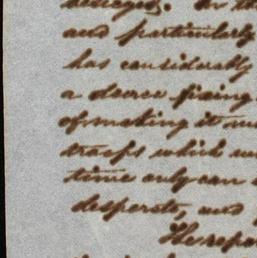 and particularly
has considerably
a decree fixing
of making it
troops which
time only can
desperate, and
The